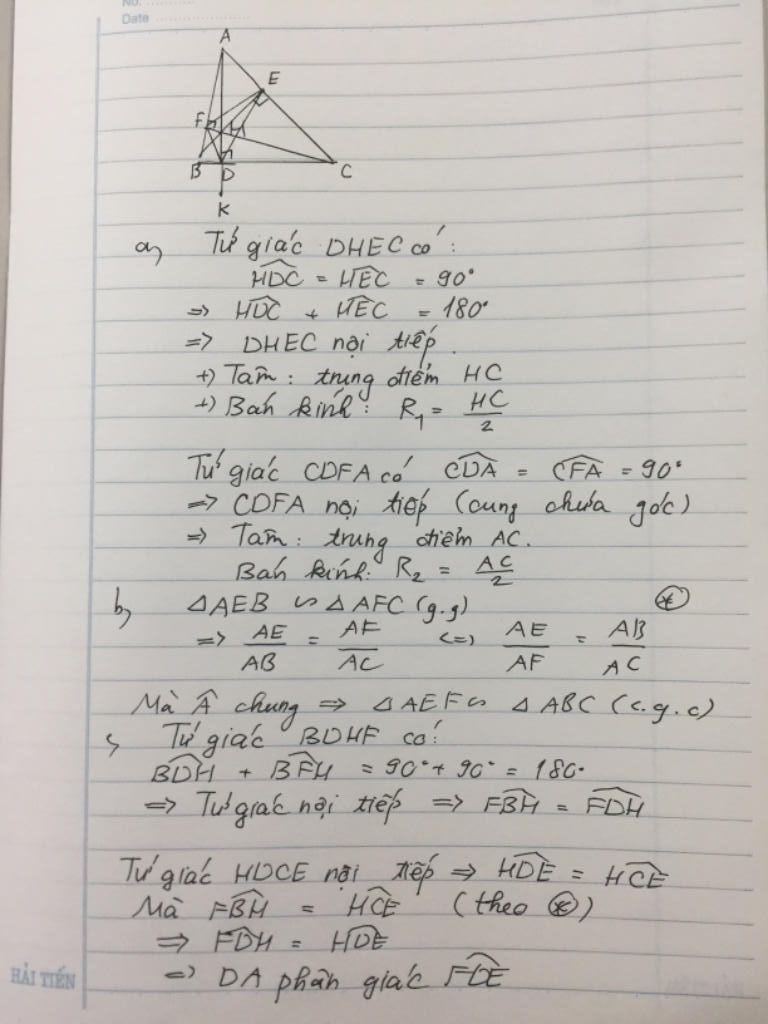 No. ..............
Date ..................
A
E
F
H
B D C
K
a, Tứ giác DHEC có:
HDC = HEC = 90°
=> HDC + HEC = 180°
=> DHEC nội tiếp.
+) Tâm: trung điểm HC
+) Bán kính: R₁ = HC/2
Tứ giác CDFA có CDA = CFA = 90°
=> CDFA nội tiếp (cung chứa góc)
=> Tâm: trung điểm AC.
Bán kính: R₂ = AC/2
b, △AEB ∽ △AFC (g.g) (*)
=> AE/AB = AF/AC <=> AE/AF = AB/AC
Mà Â chung => △AEF ∽ △ABC (c.g.c)
c, Tứ giác BDHF có:
BDH + BFH = 90° + 90° = 180°
=> Tứ giác nội tiếp => FBH = FDH
Tứ giác HDCE nội tiếp => HDE = HCE
Mà FBH = HCE (theo (*))
=> FDH = HDE
=> DA phân giác FDE
HẢI TIẾN